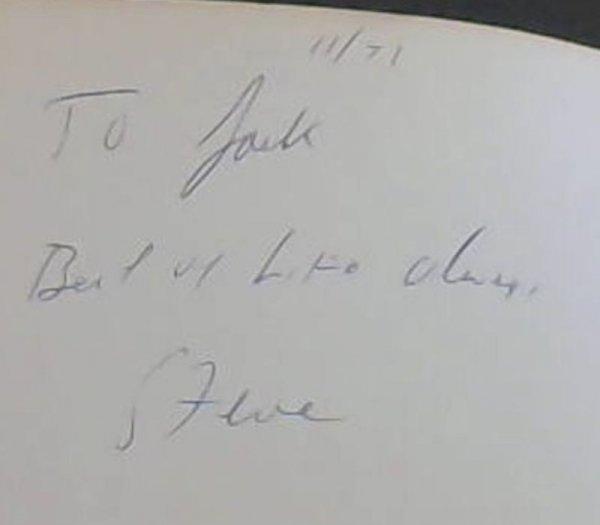 11/71
To Jack
Best of always.
Steve